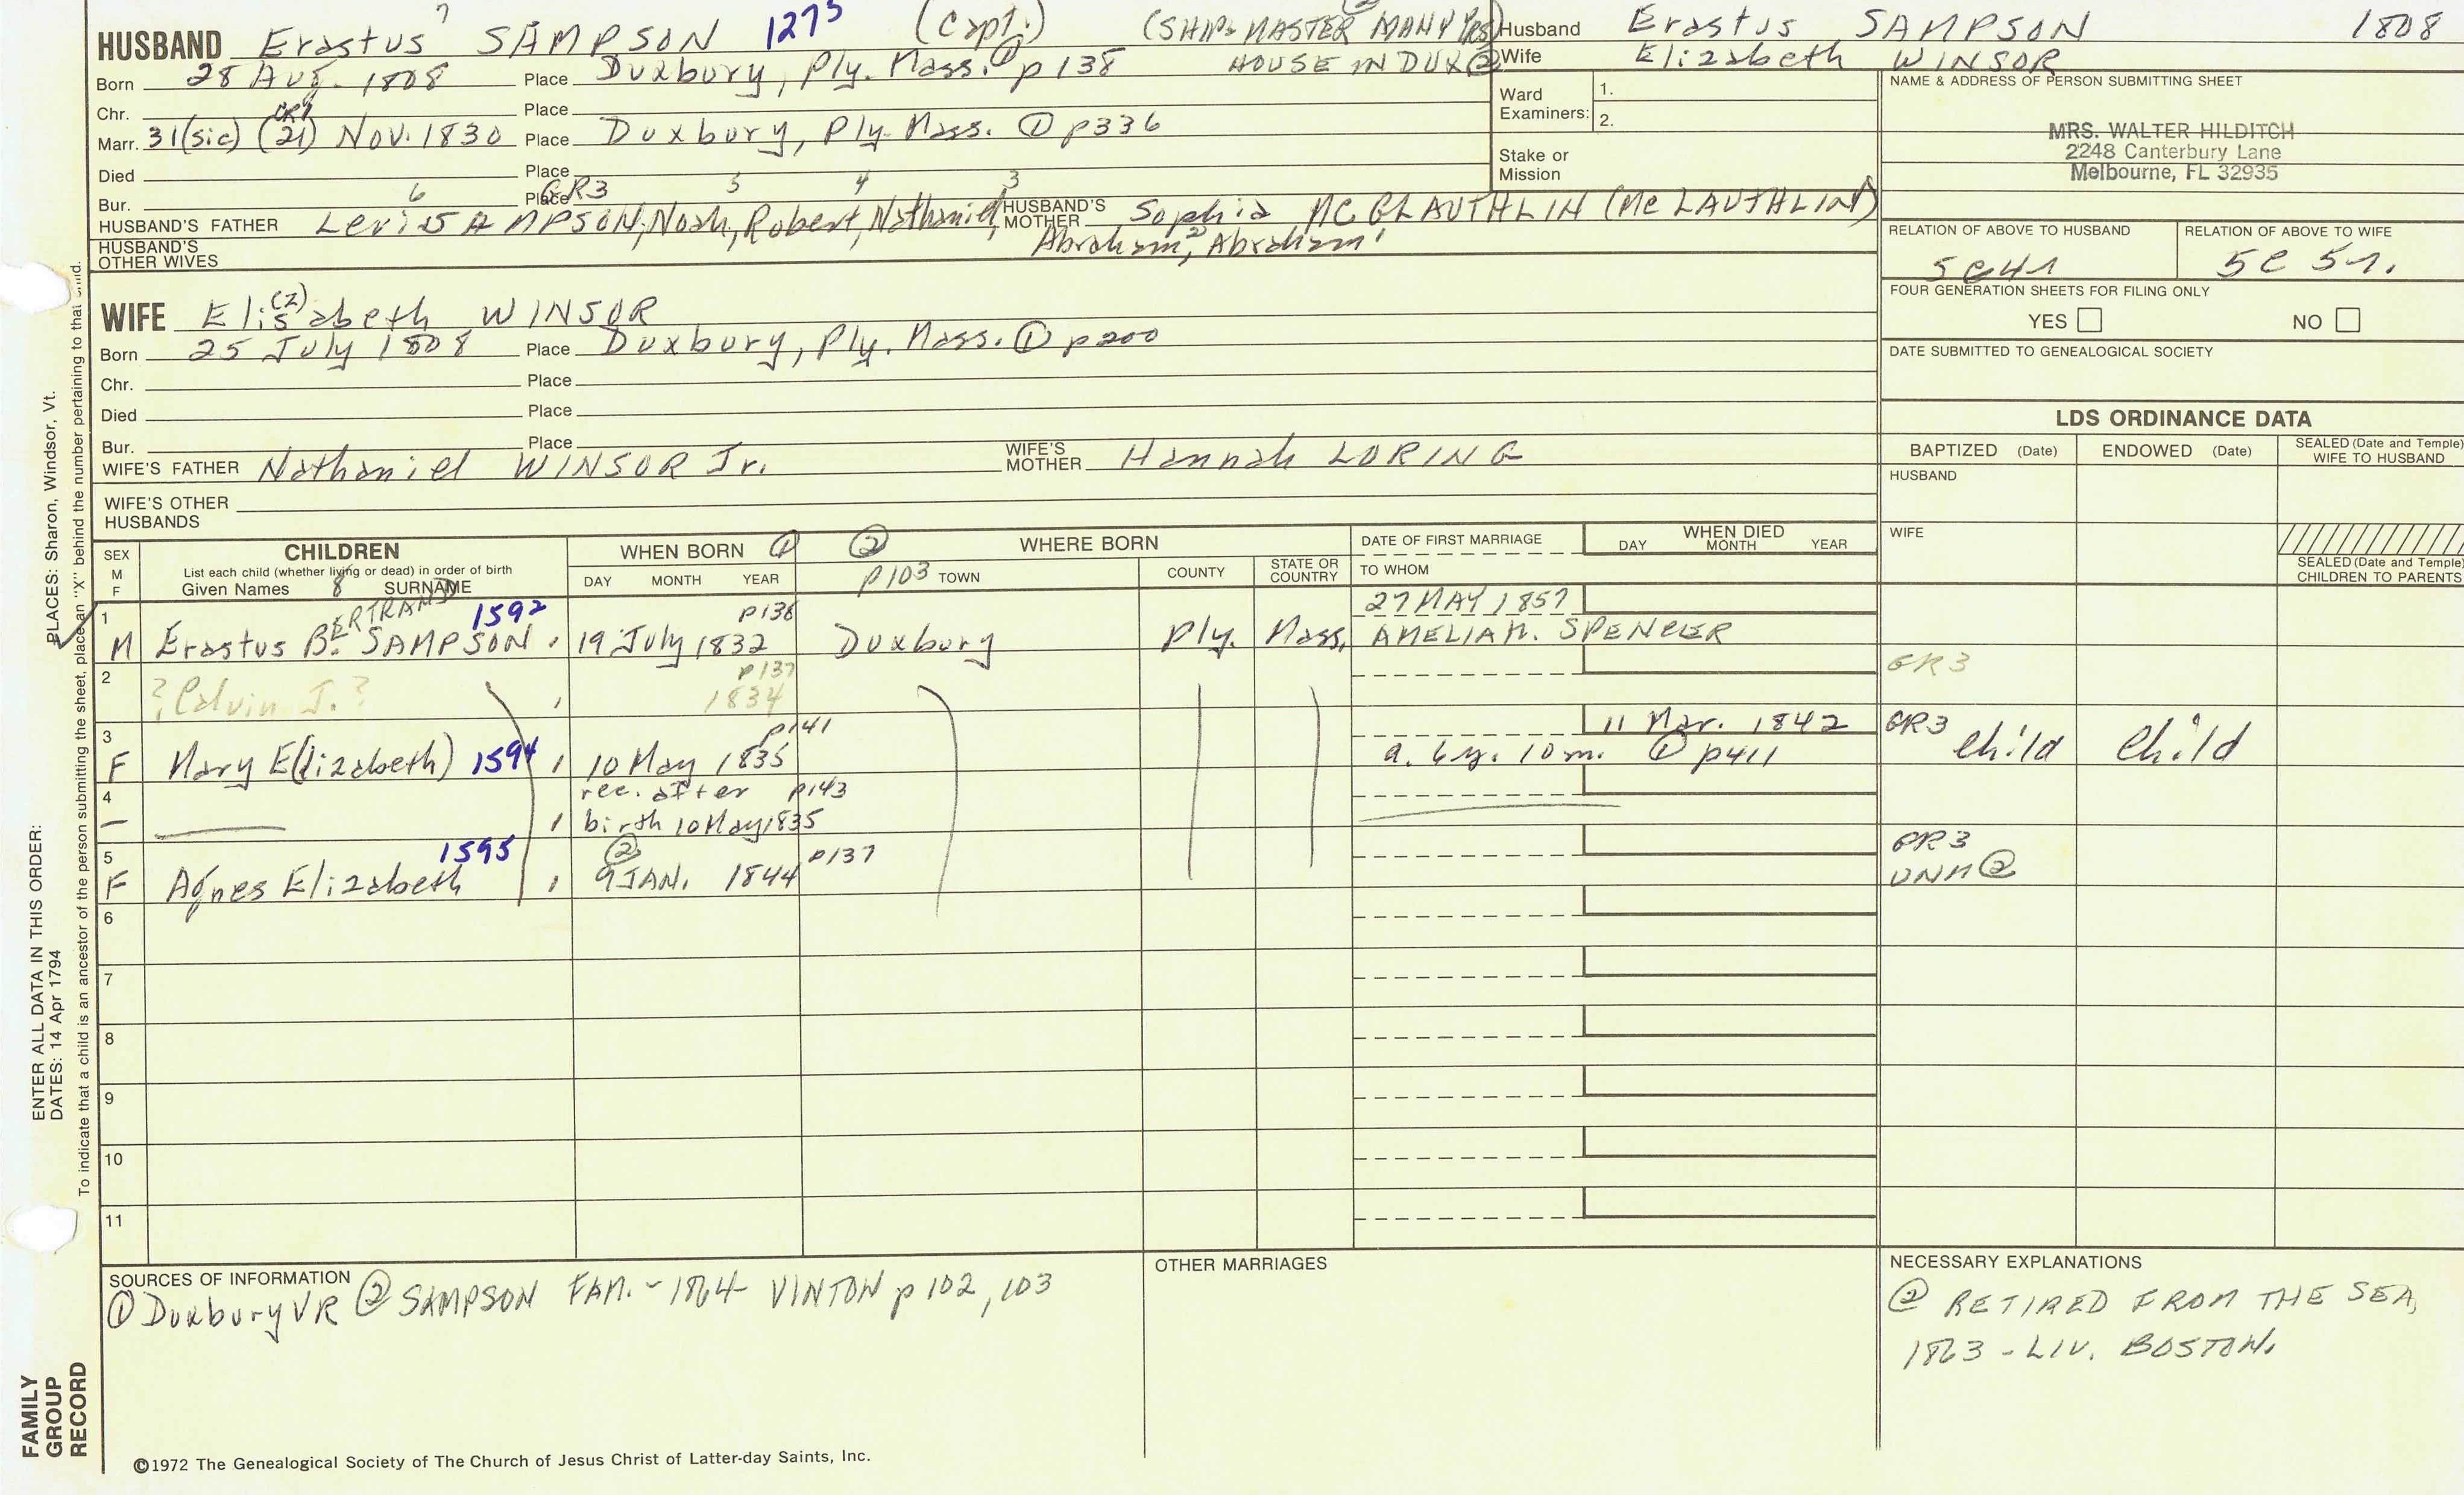 7
HUSBAND Erastus SAMPSON 1275 (Capt.) (SHIP-MASTER MANY YRS) ②
Born 28 Aug. 1808 Place Duxbury, Ply. Mass. ① p138 HOUSE IN DUX ②
Chr. Place
CR1
Marr. 31(sic) (21) Nov. 1830 Place Duxbury, Ply. Mass. ① p336
Died Place
Bur. Place GR3
6 5 4 3
HUSBAND'S FATHER Levi SAMPSON, Noah, Robert, Nathaniel, HUSBAND'S MOTHER Sophia MC GLAUTHLIN (Mc LAUTHLIN)
Abraham², Abraham¹
HUSBAND'S OTHER WIVES
Husband Erastus SAMPSON 1808
Wife Elizabeth WINSOR
Ward Examiners: 1.
2.
Stake or Mission
NAME & ADDRESS OF PERSON SUBMITTING SHEET
MRS. WALTER HILDITCH
2248 Canterbury Lane
Melbourne, FL 32935
RELATION OF ABOVE TO HUSBAND RELATION OF ABOVE TO WIFE
5c4r 5c 5r.
FOUR GENERATION SHEETS FOR FILING ONLY
YES NO
DATE SUBMITTED TO GENEALOGICAL SOCIETY
(z)
WIFE Elisabeth WINSOR
Born 25 July 1808 Place Duxbury, Ply. Mass. ① p200
Chr. Place
Died Place
Bur. Place
WIFE'S FATHER Nathaniel WINSOR Jr. WIFE'S MOTHER Hannah LORING
WIFE'S OTHER HUSBANDS
LDS ORDINANCE DATA
BAPTIZED (Date) ENDOWED (Date) SEALED (Date and Temple) WIFE TO HUSBAND
HUSBAND
WIFE
SEALED (Date and Temple) CHILDREN TO PARENTS
SEX M F
CHILDREN
List each child (whether living or dead) in order of birth
Given Names 8 SURNAME
WHEN BORN ①
DAY MONTH YEAR
② WHERE BORN
p103 TOWN COUNTY STATE OR COUNTRY
DATE OF FIRST MARRIAGE
TO WHOM
WHEN DIED
DAY MONTH YEAR
1 BERTRAND 1592 p136 27 MAY 1857
M Erastus B. SAMPSON 19 July 1832 Duxbury Ply. Mass. AMELIA M. SPENCER
2 p137 GR3
? Calvin J. ? 1834
3 p141 11 Mar. 1842 GR3
F Mary E(lizabeth) 1594 10 May 1835 a. 6y. 10m. ① p411 Child Child
4 rec. after p143
birth 10 May 1835
5 1595 ② p137 GR3
F Agnes Elizabeth 9 JAN. 1844 UNM ②
6
7
8
9
10
11
SOURCES OF INFORMATION
① Duxbury VR ② SAMPSON FAM. - 1864 - VINTON p 102, 103
OTHER MARRIAGES
NECESSARY EXPLANATIONS
② RETIRED FROM THE SEA,
1863 - LIV. BOSTON.
©1972 The Genealogical Society of The Church of Jesus Christ of Latter-day Saints, Inc.
ENTER ALL DATA IN THIS ORDER:
DATES: 14 Apr 1794
PLACES: Sharon, Windsor, Vt.
To indicate that a child is an ancestor of the person submitting the sheet, place an "X" behind the number pertaining to that child.
FAMILY
GROUP
RECORD